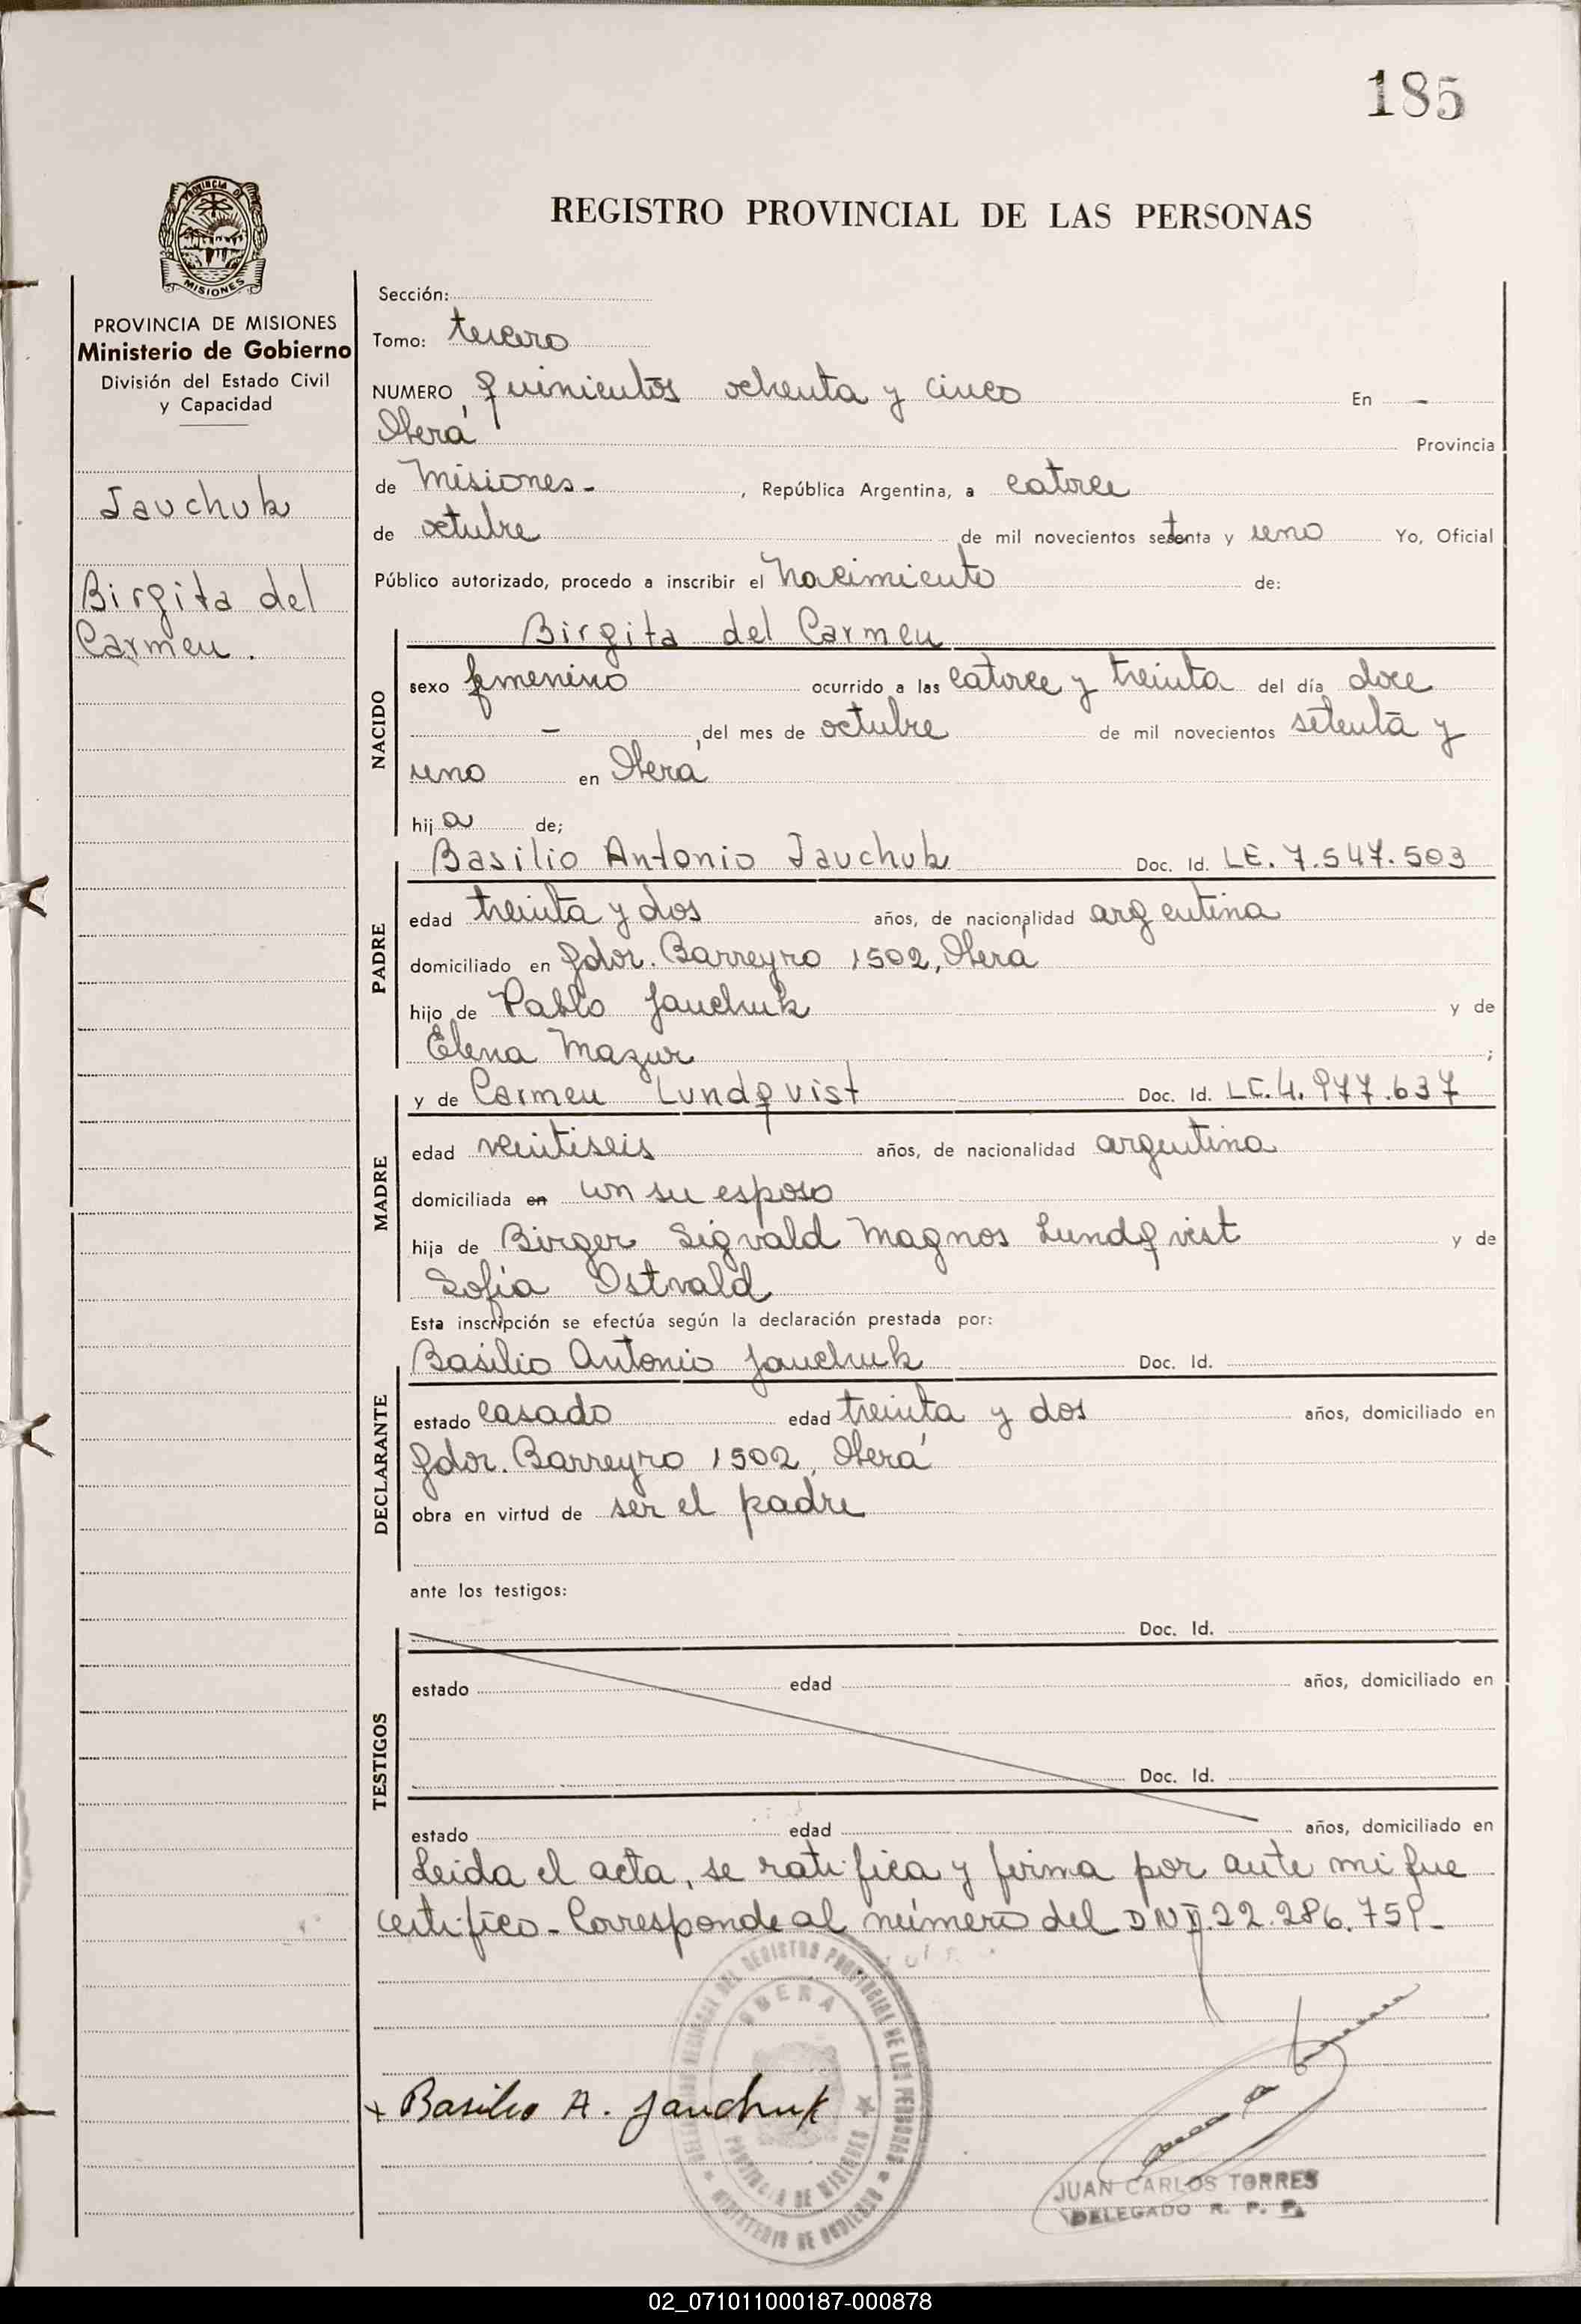 185
PROVINCIA DE
MISIONES
REGISTRO PROVINCIAL DE LAS PERSONAS
PROVINCIA DE MISIONES
Ministerio de Gobierno
División del Estado Civil
y Capacidad
Jauchuk
Birgita del
Carmen.
Sección:
Tomo: tercero
NUMERO quinientos ochenta y cinco En -
Oberá Provincia
de Misiones- , República Argentina, a catorce
de octubre de mil novecientos setenta y uno Yo, Oficial
Público autorizado, procedo a inscribir el Nacimiento de:
Birgita del Carmen
NACIDO
sexo femenino ocurrido a las catorce y treinta del día doce
- del mes de octubre de mil novecientos setenta y
uno en Oberá
hija de;
Basilio Antonio Jauchuk Doc. Id. LE. 7.547.503
PADRE
edad treinta y dos años, de nacionalidad argentina
domiciliado en Gdor. Barreyro 1502, Oberá
hijo de Pablo Jauchuk y de
Elena Mazur ;
y de Carmen Lundqvist Doc. Id. LC.4.977.637
MADRE
edad veintiseis años, de nacionalidad argentina
domiciliada en con su esposo
hija de Birger Sigvald Magnos Lundqvist y de
Sofía Ostvald
Esta inscripción se efectúa según la declaración prestada por:
Basilio Antonio Jauchuk Doc. Id.
DECLARANTE
estado casado edad treinta y dos años, domiciliado en
Gdor. Barreyro 1502, Oberá
obra en virtud de ser el padre
ante los testigos:
Doc. Id.
TESTIGOS
estado edad años, domiciliado en
Doc. Id.
estado edad años, domiciliado en
Leida el acta, se ratifica y firma por ante mi que
certifico-Corresponde al número del DNI.22.286.759-
DELEGACION REGIONAL DEL REGISTRO PROVINCIAL DE LAS PERSONAS
OBERA
PROVINCIA DE MISIONES
MINISTERIO DE GOBIERNO
x Basilio A. Jauchuk
JUAN CARLOS TORRES
DELEGADO R. P. P.
02_071011000187-000878